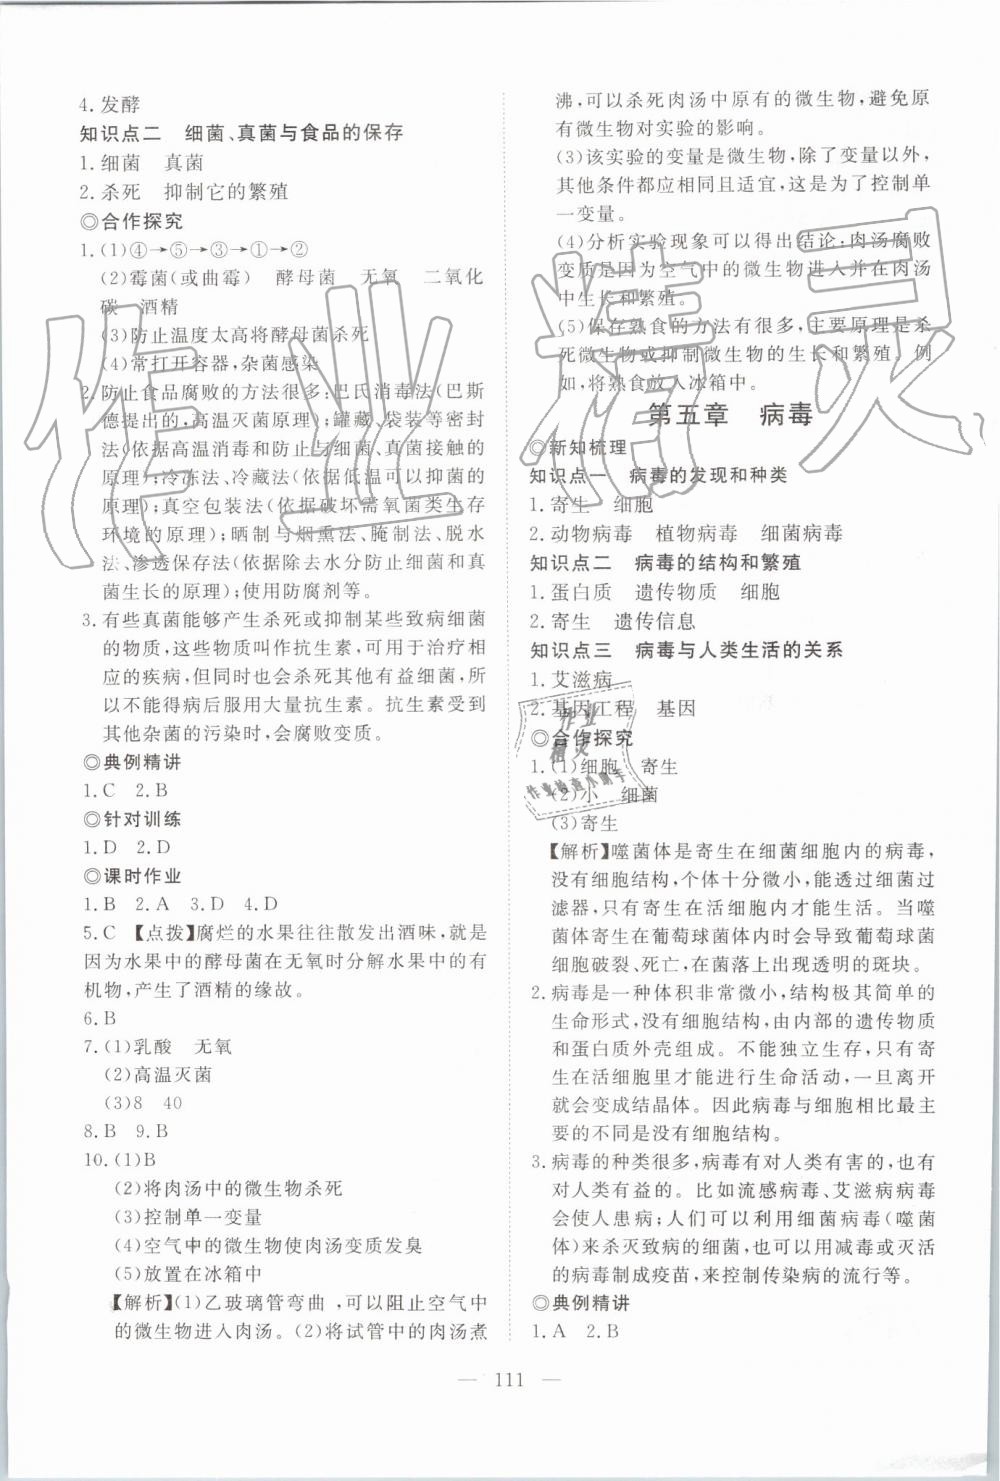 4. 发酵
知识点二 细菌、真菌与食品的保存
1. 细菌 真菌
2. 杀死 抑制它的繁殖
◎合作探究
1. (1)④→⑤→③→①→②
(2)霉菌(或曲霉) 酵母菌 无氧 二氧化
碳 酒精
(3)防止温度太高将酵母菌杀死
(4)常打开容器,杂菌感染
2. 防止食品腐败的方法很多:巴氏消毒法(巴斯
德提出的,高温灭菌原理);罐藏、袋装等密封
法(依据高温消毒和防止与细菌、真菌接触的
原理);冷冻法、冷藏法(依据低温可以抑菌的
原理);真空包装法(依据破坏需氧菌类生存
环境的原理);晒制与烟熏法、腌制法、脱水
法、渗透保存法(依据除去水分防止细菌和真
菌生长的原理);使用防腐剂等。
3. 有些真菌能够产生杀死或抑制某些致病细菌
的物质,这些物质叫作抗生素,可用于治疗相
应的疾病,但同时也会杀死其他有益细菌,所
以不能得病后服用大量抗生素。抗生素受到
其他杂菌的污染时,会腐败变质。
◎典例精讲
1. C 2. B
◎针对训练
1. D 2. D
◎课时作业
1. B 2. A 3. D 4. D
5. C 【点拨】腐烂的水果往往散发出酒味,就是
因为水果中的酵母菌在无氧时分解水果中的有
机物,产生了酒精的缘故。
6. B
7. (1)乳酸 无氧
(2)高温灭菌
(3)8 40
8. B 9. B
10. (1)B
(2)将肉汤中的微生物杀死
(3)控制单一变量
(4)空气中的微生物使肉汤变质发臭
(5)放置在冰箱中
【解析】(1)乙玻璃管弯曲,可以阻止空气中
的微生物进入肉汤。(2)将试管中的肉汤煮
沸,可以杀死肉汤中原有的微生物,避免原
有微生物对实验的影响。
(3)该实验的变量是微生物,除了变量以外,
其他条件都应相同且适宜,这是为了控制单
一变量。
(4)分析实验现象可以得出结论:肉汤腐败
变质是因为空气中的微生物进入并在肉汤
中生长和繁殖。
(5)保存熟食的方法有很多,主要原理是杀
死微生物或抑制微生物的生长和繁殖。例
如,将熟食放入冰箱中。
第五章 病毒
◎新知梳理
知识点一 病毒的发现和种类
1. 寄生 细胞
2. 动物病毒 植物病毒 细菌病毒
知识点二 病毒的结构和繁殖
1. 蛋白质 遗传物质 细胞
2. 寄生 遗传信息
知识点三 病毒与人类生活的关系
1. 艾滋病
2. 基因工程 基因
◎合作探究
1. (1)细胞 寄生
(2)小 细菌
(3)寄生
【解析】噬菌体是寄生在细菌细胞内的病毒,
没有细胞结构,个体十分微小,能透过细菌过
滤器,只有寄生在活细胞内才能生活。当噬
菌体寄生在葡萄球菌体内时会导致葡萄球菌
细胞破裂、死亡,在菌落上出现透明的斑块。
2. 病毒是一种体积非常微小,结构极其简单的
生命形式,没有细胞结构,由内部的遗传物质
和蛋白质外壳组成。不能独立生存,只有寄
生在活细胞里才能进行生命活动,一旦离开
就会变成结晶体。因此病毒与细胞相比最主
要的不同是没有细胞结构。
3. 病毒的种类很多,病毒有对人类有害的,也有
对人类有益的。比如流感病毒、艾滋病病毒
会使人患病;人们可以利用细菌病毒(噬菌
体)来杀灭致病的细菌,也可以用减毒或灭活
的病毒制成疫苗,来控制传染病的流行等。
◎典例精讲
1. A 2. B
— 111 —
作业精灵
作业
精灵
作业检查小助手